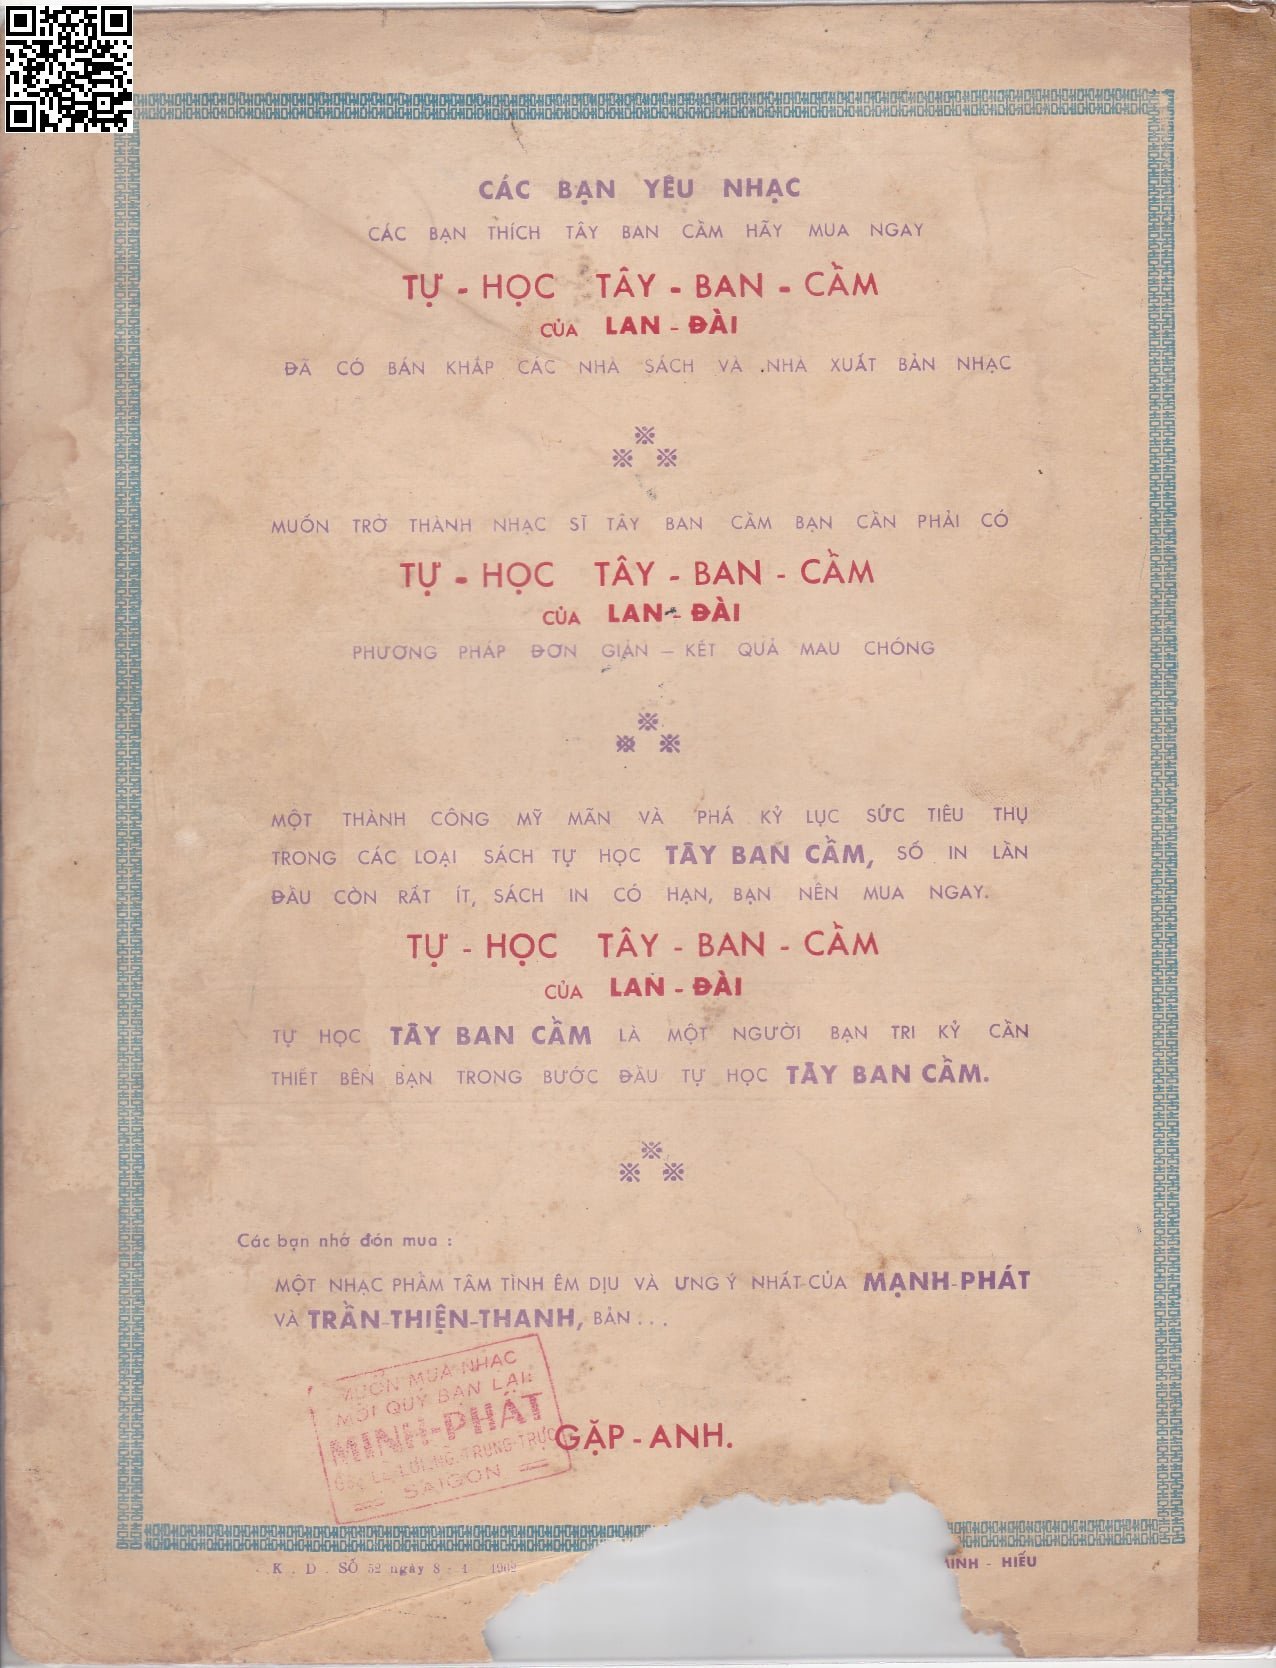 CÁC BẠN YÊU NHẠC
CÁC BẠN THÍCH TÂY BAN CẦM HÃY MUA NGAY
TỰ - HỌC TÂY - BAN - CẦM
CỦA LAN - ĐÀI
ĐÃ CÓ BÁN KHẮP CÁC NHÀ SÁCH VÀ NHÀ XUẤT BẢN NHẠC
MUỐN TRỞ THÀNH NHẠC SĨ TÂY BAN CẦM BẠN CẦN PHẢI CÓ
TỰ - HỌC TÂY - BAN - CẦM
CỦA LAN - ĐÀI
PHƯƠNG PHÁP ĐƠN GIẢN — KẾT QUẢ MAU CHÓNG
MỘT THÀNH CÔNG MỸ MÃN VÀ PHÁ KỶ LỤC SỨC TIÊU THỤ
TRONG CÁC LOẠI SÁCH TỰ HỌC TÂY BAN CẦM, SỐ IN LẦN
ĐẦU CÒN RẤT ÍT, SÁCH IN CÓ HẠN, BẠN NÊN MUA NGAY.
TỰ - HỌC TÂY - BAN - CẦM
CỦA LAN - ĐÀI
TỰ HỌC TÂY BAN CẦM LÀ MỘT NGƯỜI BẠN TRI KỶ CẦN
THIẾT BÊN BẠN TRONG BƯỚC ĐẦU TỰ HỌC TÂY BAN CẦM.
Các bạn nhớ đón mua :
MỘT NHẠC PHẦM TÂM TÌNH ÊM DỊU VÀ ƯNG Ý NHẤT CỦA MẠNH-PHÁT
VÀ TRẦN-THIỆN-THANH, BẢN . . .
MUỐN MUA NHẠC
MỜI QUÝ BẠN LẠI
MINH-PHÁT
SAIGON
GẶP - ANH.
K . D . SỐ 52 ngày 8 - 1 1962
MINH - HIẾU